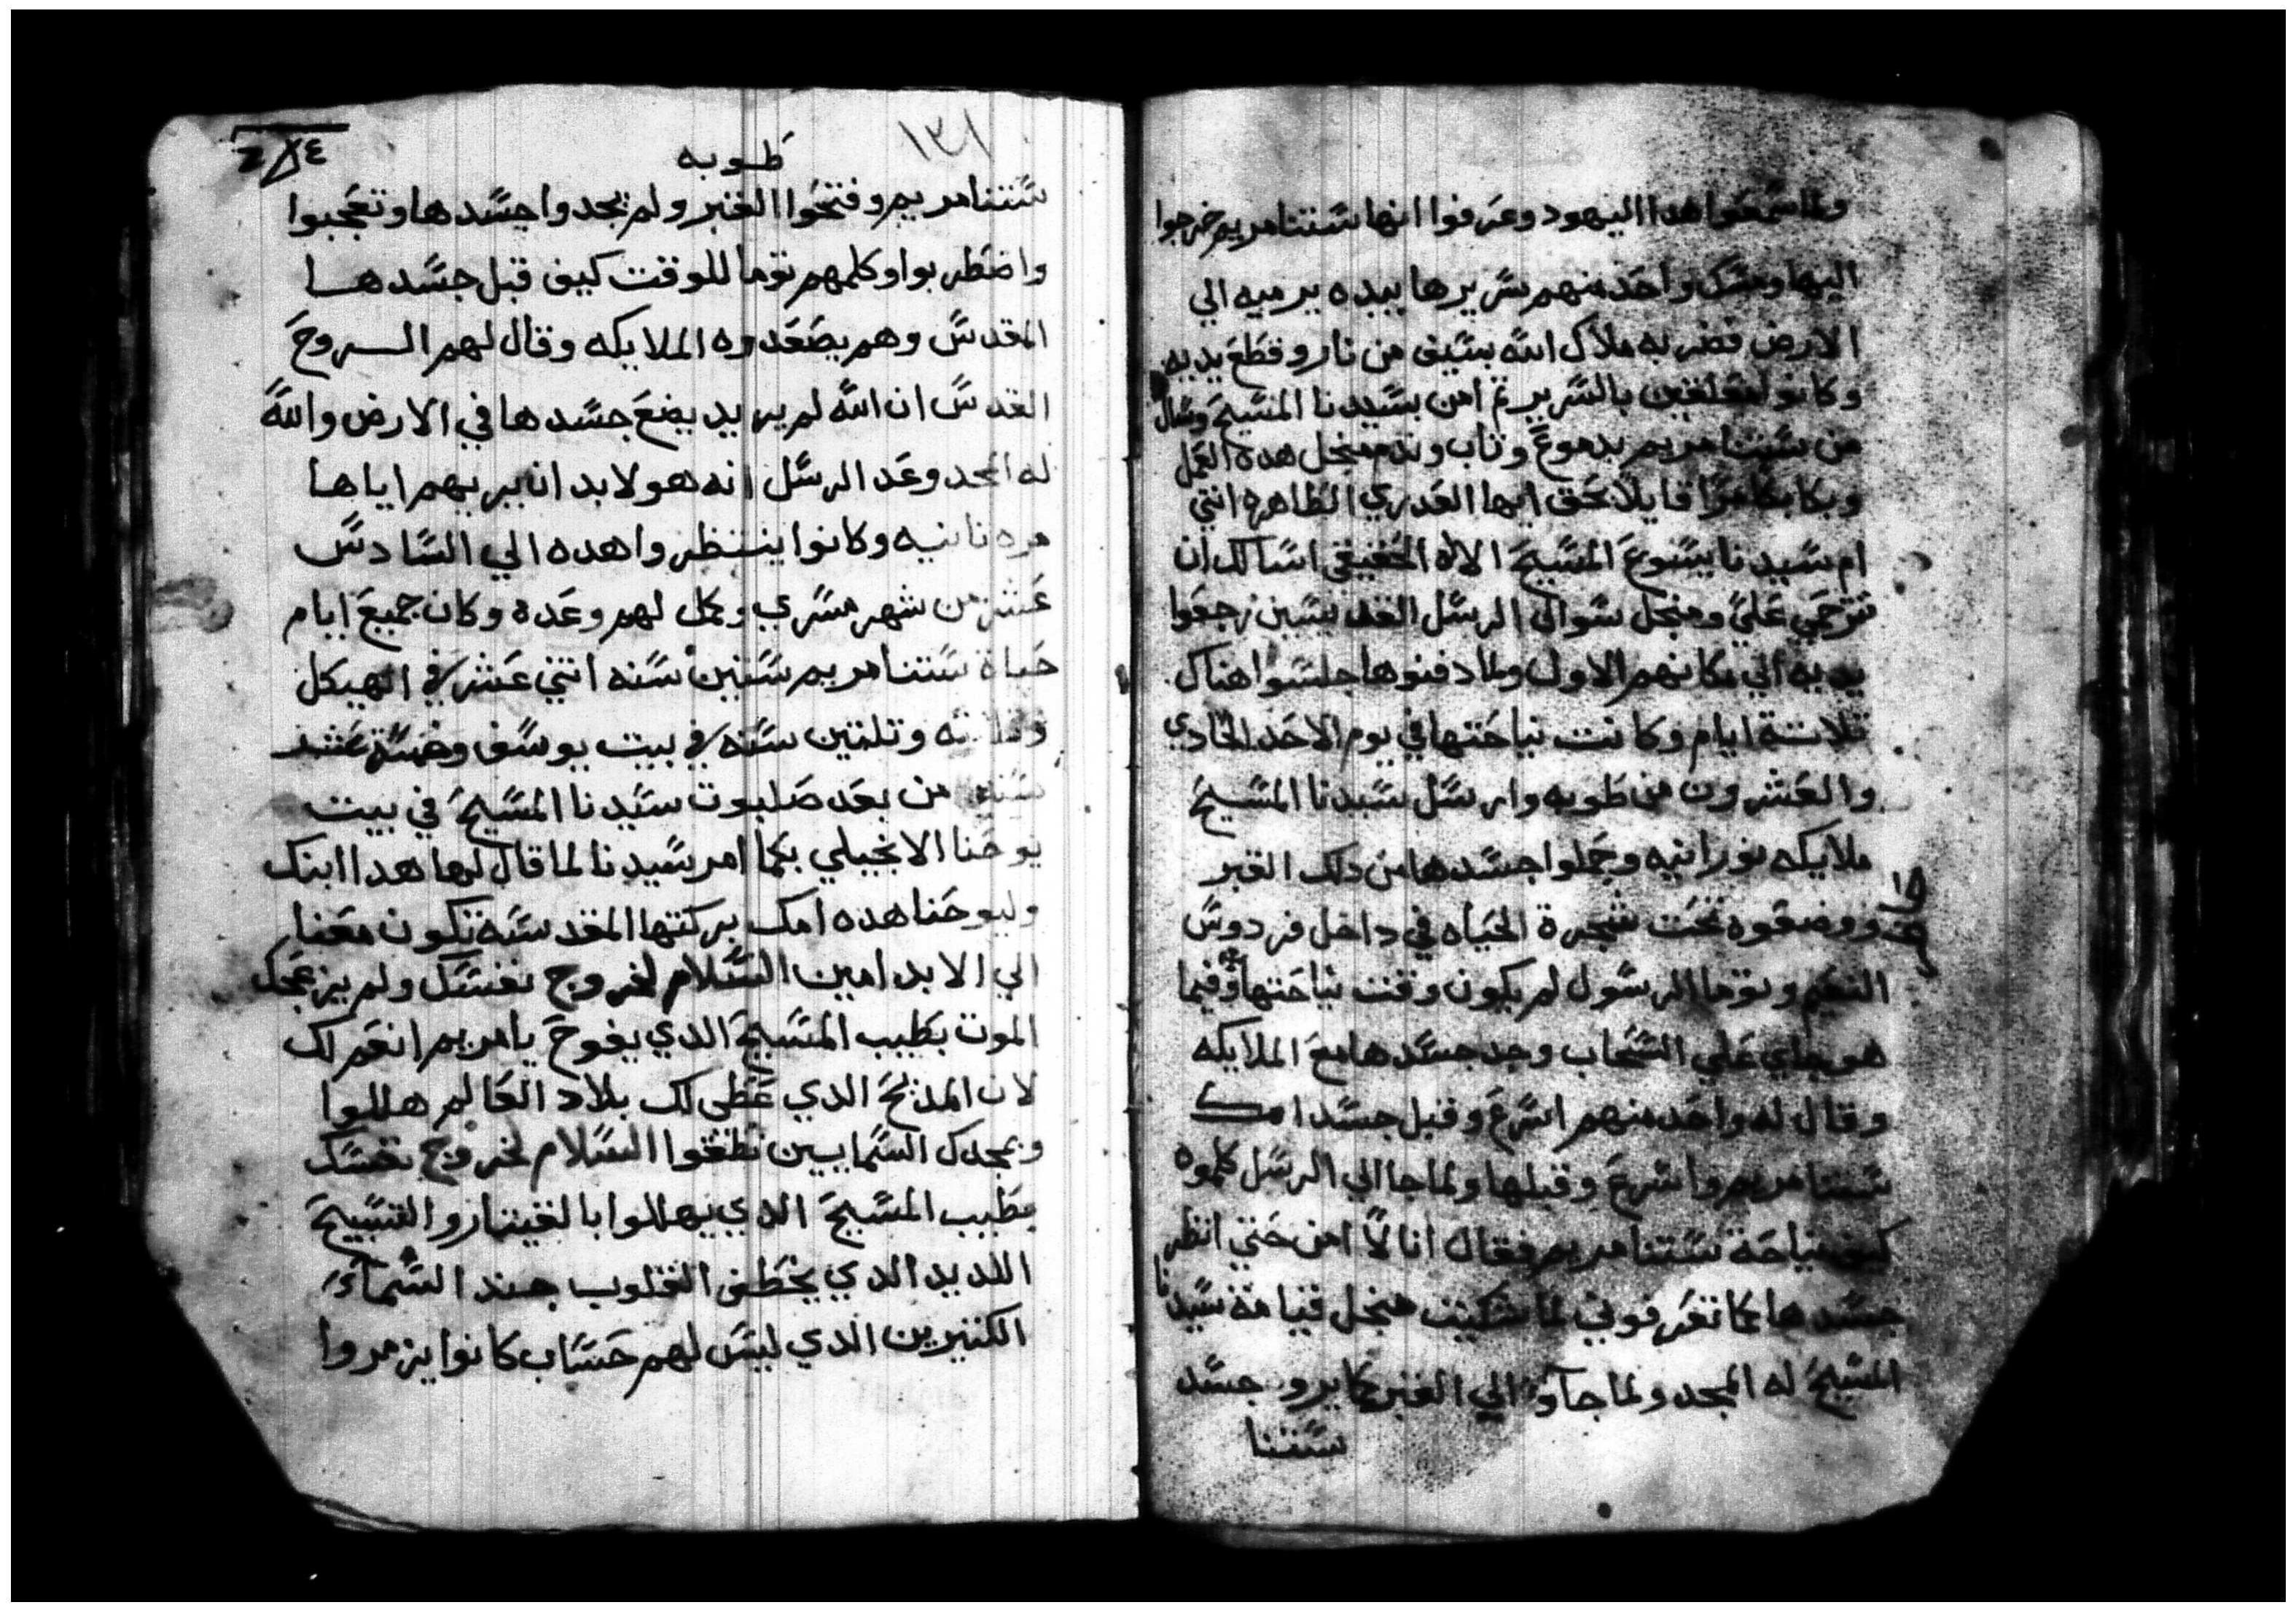 ولما سمعوا هدا اليهود وعرفوا انها ستنا مريم خرجوا
اليها ومسك واحد منهم سريرها بيده يرميه الي
الارض فضربه ملاك الله بسيف من نار وقطع يديه
وكانو متعلقين بالسرير ثم امن بسيدنا المسيح وسال
من ستنا مريم بدموع وتاب وندم منجل هده العمل
وبكا بكا مرا قايلا بحق ايها العدري الطاهره انتي
ام سيدنا يسوع المسيح الاله الحقيقي اسالك ان
تترحمي علي ومنجل سوال الرسل القديسين رجعوا
يديه الي مكانهم الاول ولما دفنوها جلسوا هناك
تلاتة ايام وكانت نياحتها في يوم الاحد الحادي
والعشرون من طوبه وارسل سيدنا المسيح
ملايكه نورانيه وحملوا جسدها من دلك القبر
ووضعوه تحت شجرة الحياه في داخل فردوس
النعيم وتوما الرسول لم يكون وقت نياحتها وفيما
هو جاي علي السحاب وجد جسدها مع الملايكه
وقال له واحد منهم اسرع وقبل جسد امك
ستنا مريم واسرع وقبلها ولما جا الي الرسل كلموه
كيف نياحة ستنا مريم فقال انا لا امن حتي انظر
جسدها كما تعرفوني لما شكيت منجل قيامة سيدنا
المسيح له المجد ولما جاو الي القبر كما يرو جسد
ستنا
١٣١
طوبه
ستنا مريم وفتحوا القبر ولم يجدوا جسدها وتعجبوا
واضطربوا وكلمهم توما للوقت كيف قبل جسدها
المقدس وهم يصعدوه الملايكه وقال لهم الروح
القدس ان الله لم يريد يضع جسدها في الارض والله
له المجد وعد الرسل انه هو لابد ان يريهم اياها
مره تانيه وكانوا ينتظروا هده الي السادس
عشر من شهر مسري وكمل لهم وعده وكان جميع ايام
حياة ستنا مريم ستين سنه اتني عشر في الهيكل
وتلاته وتلتين سنه في بيت يوسف وخمسة عشر
سنه من بعد صلبوت سيدنا المسيح في بيت
يوحنا الانجيلي بكما امر سيدنا لما قال لها هدا ابنك
وليوحنا هده امك بركتها المقدسه تكون معنا
الي الابد امين السلام لخروج نفسك ولم يزعجك
الموت بطيب المسيح الدي يفوح يا مريم انعم لك
لان المديح الدي غطى لك بلاد العالم هللوا
وبمجدك السماييين نطقوا السلام لخروج نفسك
بطيب المسيح الدي يهللوا بالقيتار والتسبيح
اللديد الدي يخطف القلوب جند السماء
الكتيرين الدي ليس لهم حساب كانوا يزمروا